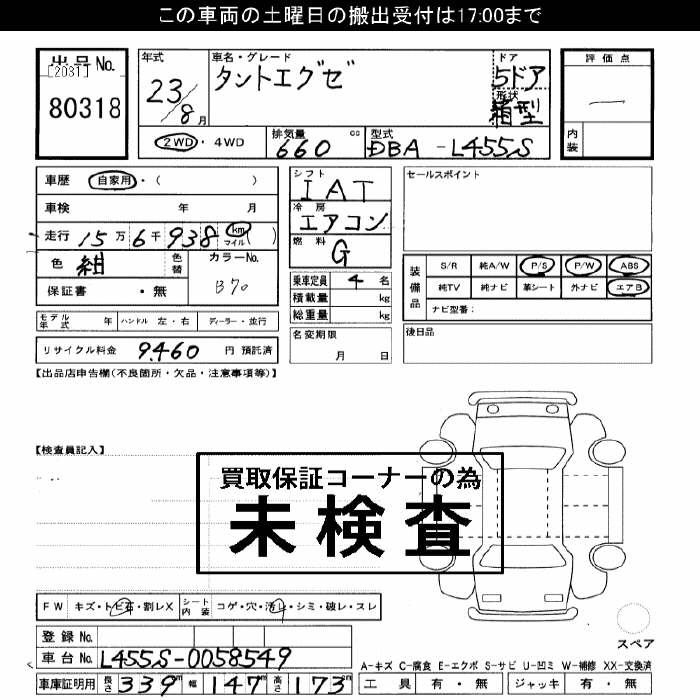 この車両の土曜日の搬出受付は17:00まで
出品No.
[2031]
80318
年式
23/8月
車名・グレード
タントエグゼ
ドア
5ドア
形状
箱型
評価点
内装
2WD・4WD
排気量
660 cc
型式
DBA-L455S
車歴 自家用・( )
車検 年 月
走行 15万6千938 km マイル ( )
色 紺 色替
カラーNo.
B70
保証書 ・無
シフト
IAT
冷房
エアコン
燃料
G
乗車定員 4名
積載量 kg
総重量 kg
セールスポイント
装備品
S/R 純A/W P/S P/W ABS
純TV 純ナビ 革シート 外ナビ エアB
ナビ型番:
モデル年式 年 ハンドル 左・右 ディーラー・並行
リサイクル料金 9460 円 預託済
名変期限
月 日
後日品
【出品店申告欄(不良箇所・欠品・注意事項等)】
【検査員記入】
買取保証コーナーの為
未検査
FW キズ・トビ石・割レX シート内装 コゲ・穴・汚レ・シミ・破レ・スレ
スペア
登録No.
車台No. L455S-0058549
A-キズ C-腐食 E-エクボ S-サビ U-凹ミ W-補修 XX-交換済
車庫証明用 長さ 339m 幅 147m 高さ 173cm
工具 有・無 ジャッキ 有・無